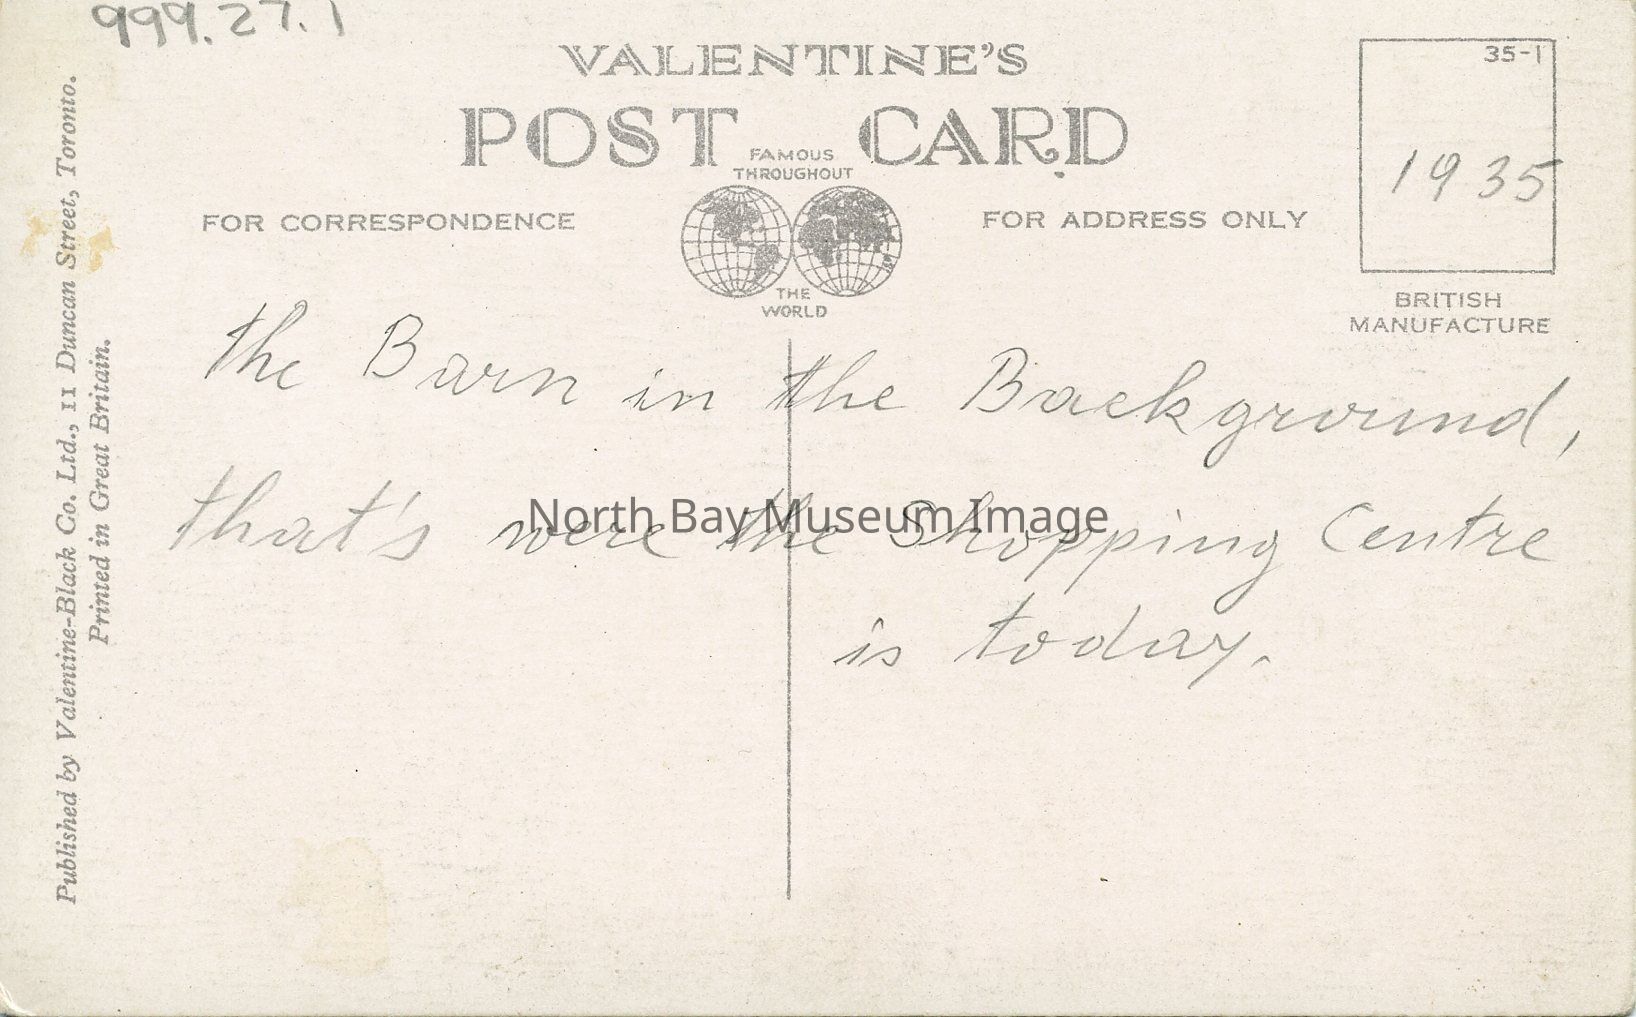 999.27.1
VALENTINE'S
POST CARD
FAMOUS
THROUGHOUT
THE
WORLD
FOR CORRESPONDENCE
FOR ADDRESS ONLY
35-1
1935
BRITISH
MANUFACTURE
the Barn in the Background,
that's were the Shopping Centre
is today.
North Bay Museum Image
Published by Valentine-Black Co. Ltd., 11 Duncan Street, Toronto.
Printed in Great Britain.